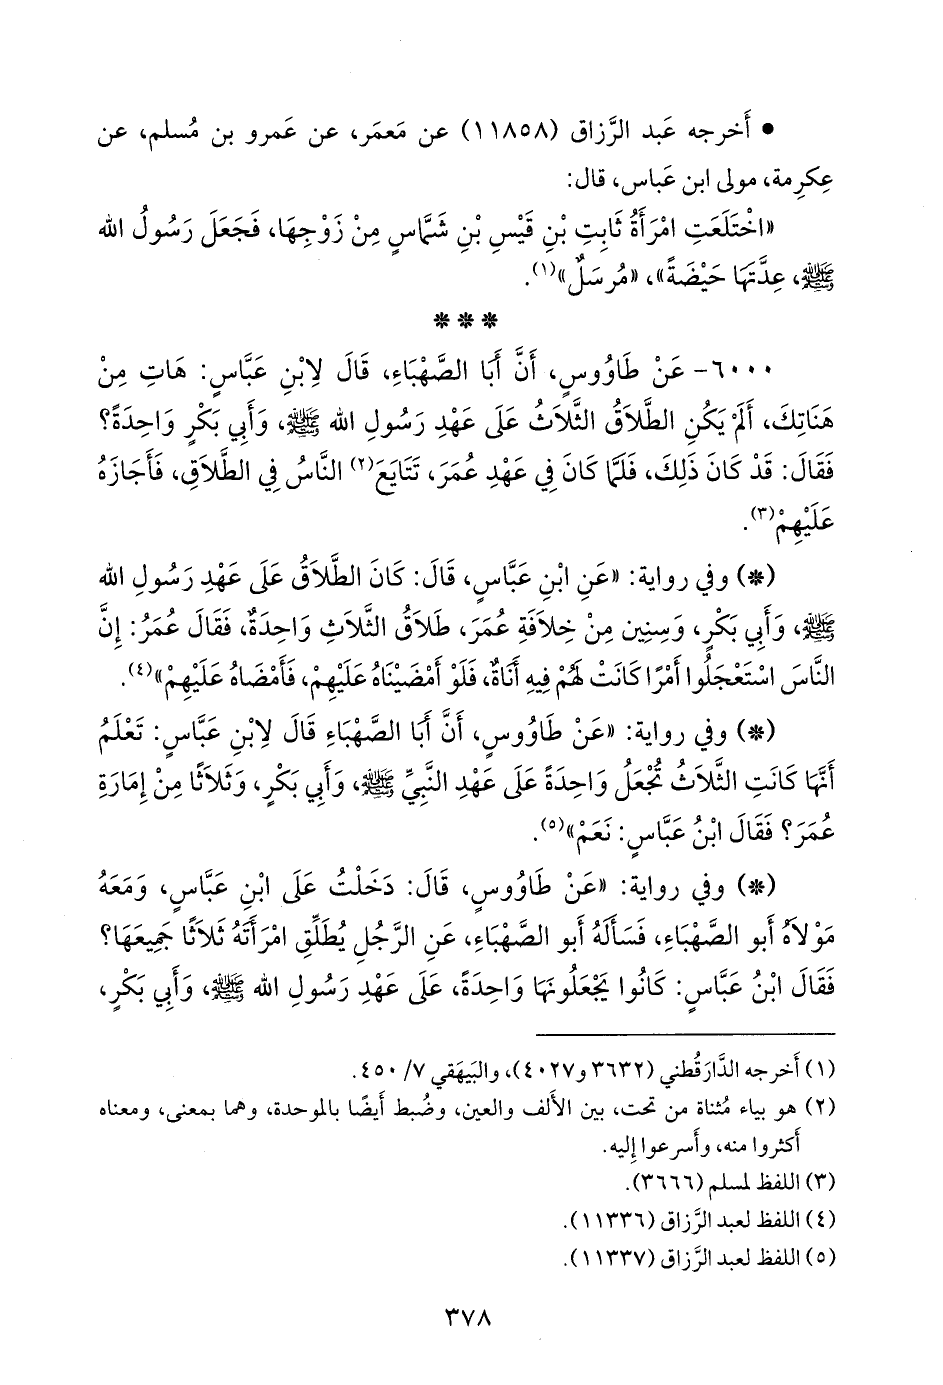 • أَخرجه عَبد الرَّزاق (١١٨٥٨) عن مَعمَر، عن عَمرو بن مُسلم، عن
عِكرِمة، مولى ابن عَباس، قال:
«اخْتَلَعَتِ امْرَأَةُ ثَابِتِ بْنِ قَيْسِ بْنِ شَمَّاسٍ مِنْ زَوْجِهَا، فَجَعَلَ رَسُولُ الله
ﷺ، عِدَّتَهَا حَيْضَةً»، «مُرسَلٌ»(١).
* * *
٦٠٠٠- عَنْ طَاوُوسٍ، أَنَّ أَبَا الصَّهْبَاءِ، قَالَ لِابْنِ عَبَّاسٍ: هَاتِ مِنْ
هَنَاتِكَ، أَلَمْ يَكُنِ الطَّلَاقُ الثَّلَاثُ عَلَى عَهْدِ رَسُولِ الله ﷺ، وَأَبِي بَكْرٍ وَاحِدَةً؟
فَقَالَ: قَدْ كَانَ ذَلِكَ، فَلَمَّا كَانَ فِي عَهْدِ عُمَرَ، تَتَايَعَ(٢) النَّاسُ فِي الطَّلَاقِ، فَأَجَازَهُ
عَلَيْهِمْ(٣).
(*) وفي رواية: «عَنِ ابْنِ عَبَّاسٍ، قَالَ: كَانَ الطَّلَاقُ عَلَى عَهْدِ رَسُولِ الله
ﷺ، وَأَبِي بَكْرٍ، وَسِنِين مِنْ خِلَافَةِ عُمَرَ، طَلَاقُ الثَّلَاثِ وَاحِدَةٌ، فَقَالَ عُمَرُ: إِنَّ
النَّاسَ اسْتَعْجَلُوا أَمْرًا كَانَتْ لَهُمْ فِيهِ أَنَاةٌ، فَلَوْ أَمْضَيْنَاهُ عَلَيْهِمْ، فَأَمْضَاهُ عَلَيْهِمْ»(٤).
(*) وفي رواية: «عَنْ طَاوُوسٍ، أَنَّ أَبَا الصَّهْبَاءِ قَالَ لِابْنِ عَبَّاسٍ: تَعْلَمُ
أَنَّهَا كَانَتِ الثَّلَاثُ تُجْعَلُ وَاحِدَةً عَلَى عَهْدِ النَّبِيِّ ﷺ، وَأَبِي بَكْرٍ، وَثَلَاثًا مِنْ إِمَارَةِ
عُمَرَ؟ فَقَالَ ابْنُ عَبَّاسٍ: نَعَمْ»(٥).
(*) وفي رواية: «عَنْ طَاوُوسٍ، قَالَ: دَخَلْتُ عَلَى ابْنِ عَبَّاسٍ، وَمَعَهُ
مَوْلَاهُ أَبو الصَّهْبَاءِ، فَسَأَلَهُ أَبو الصَّهْبَاءِ، عَنِ الرَّجُلِ يُطَلِّقِ امْرَأَتَهُ ثَلَاثًا جَمِيعَهَا؟
فَقَالَ ابْنُ عَبَّاسٍ: كَانُوا يَجْعَلُونَهَا وَاحِدَةً، عَلَى عَهْدِ رَسُولِ الله ﷺ، وَأَبِي بَكْرٍ،
(١) أَخرجه الدَّارَقُطني (٣٦٣٢ و٤٠٢٧)، والبَيهَقي ٧/ ٤٥٠.
(٢) هو بياء مُثناة من تحت، بين الأَلف والعين، وضُبط أَيضًا بالموحدة، وهما بمعنى، ومعناه
أَكثروا منه، وأَسرعوا إِليه.
(٣) اللفظ لمسلم (٣٦٦٦).
(٤) اللفظ لعبد الرَّزاق (١١٣٣٦).
(٥) اللفظ لعبد الرَّزاق (١١٣٣٧).
٣٧٨